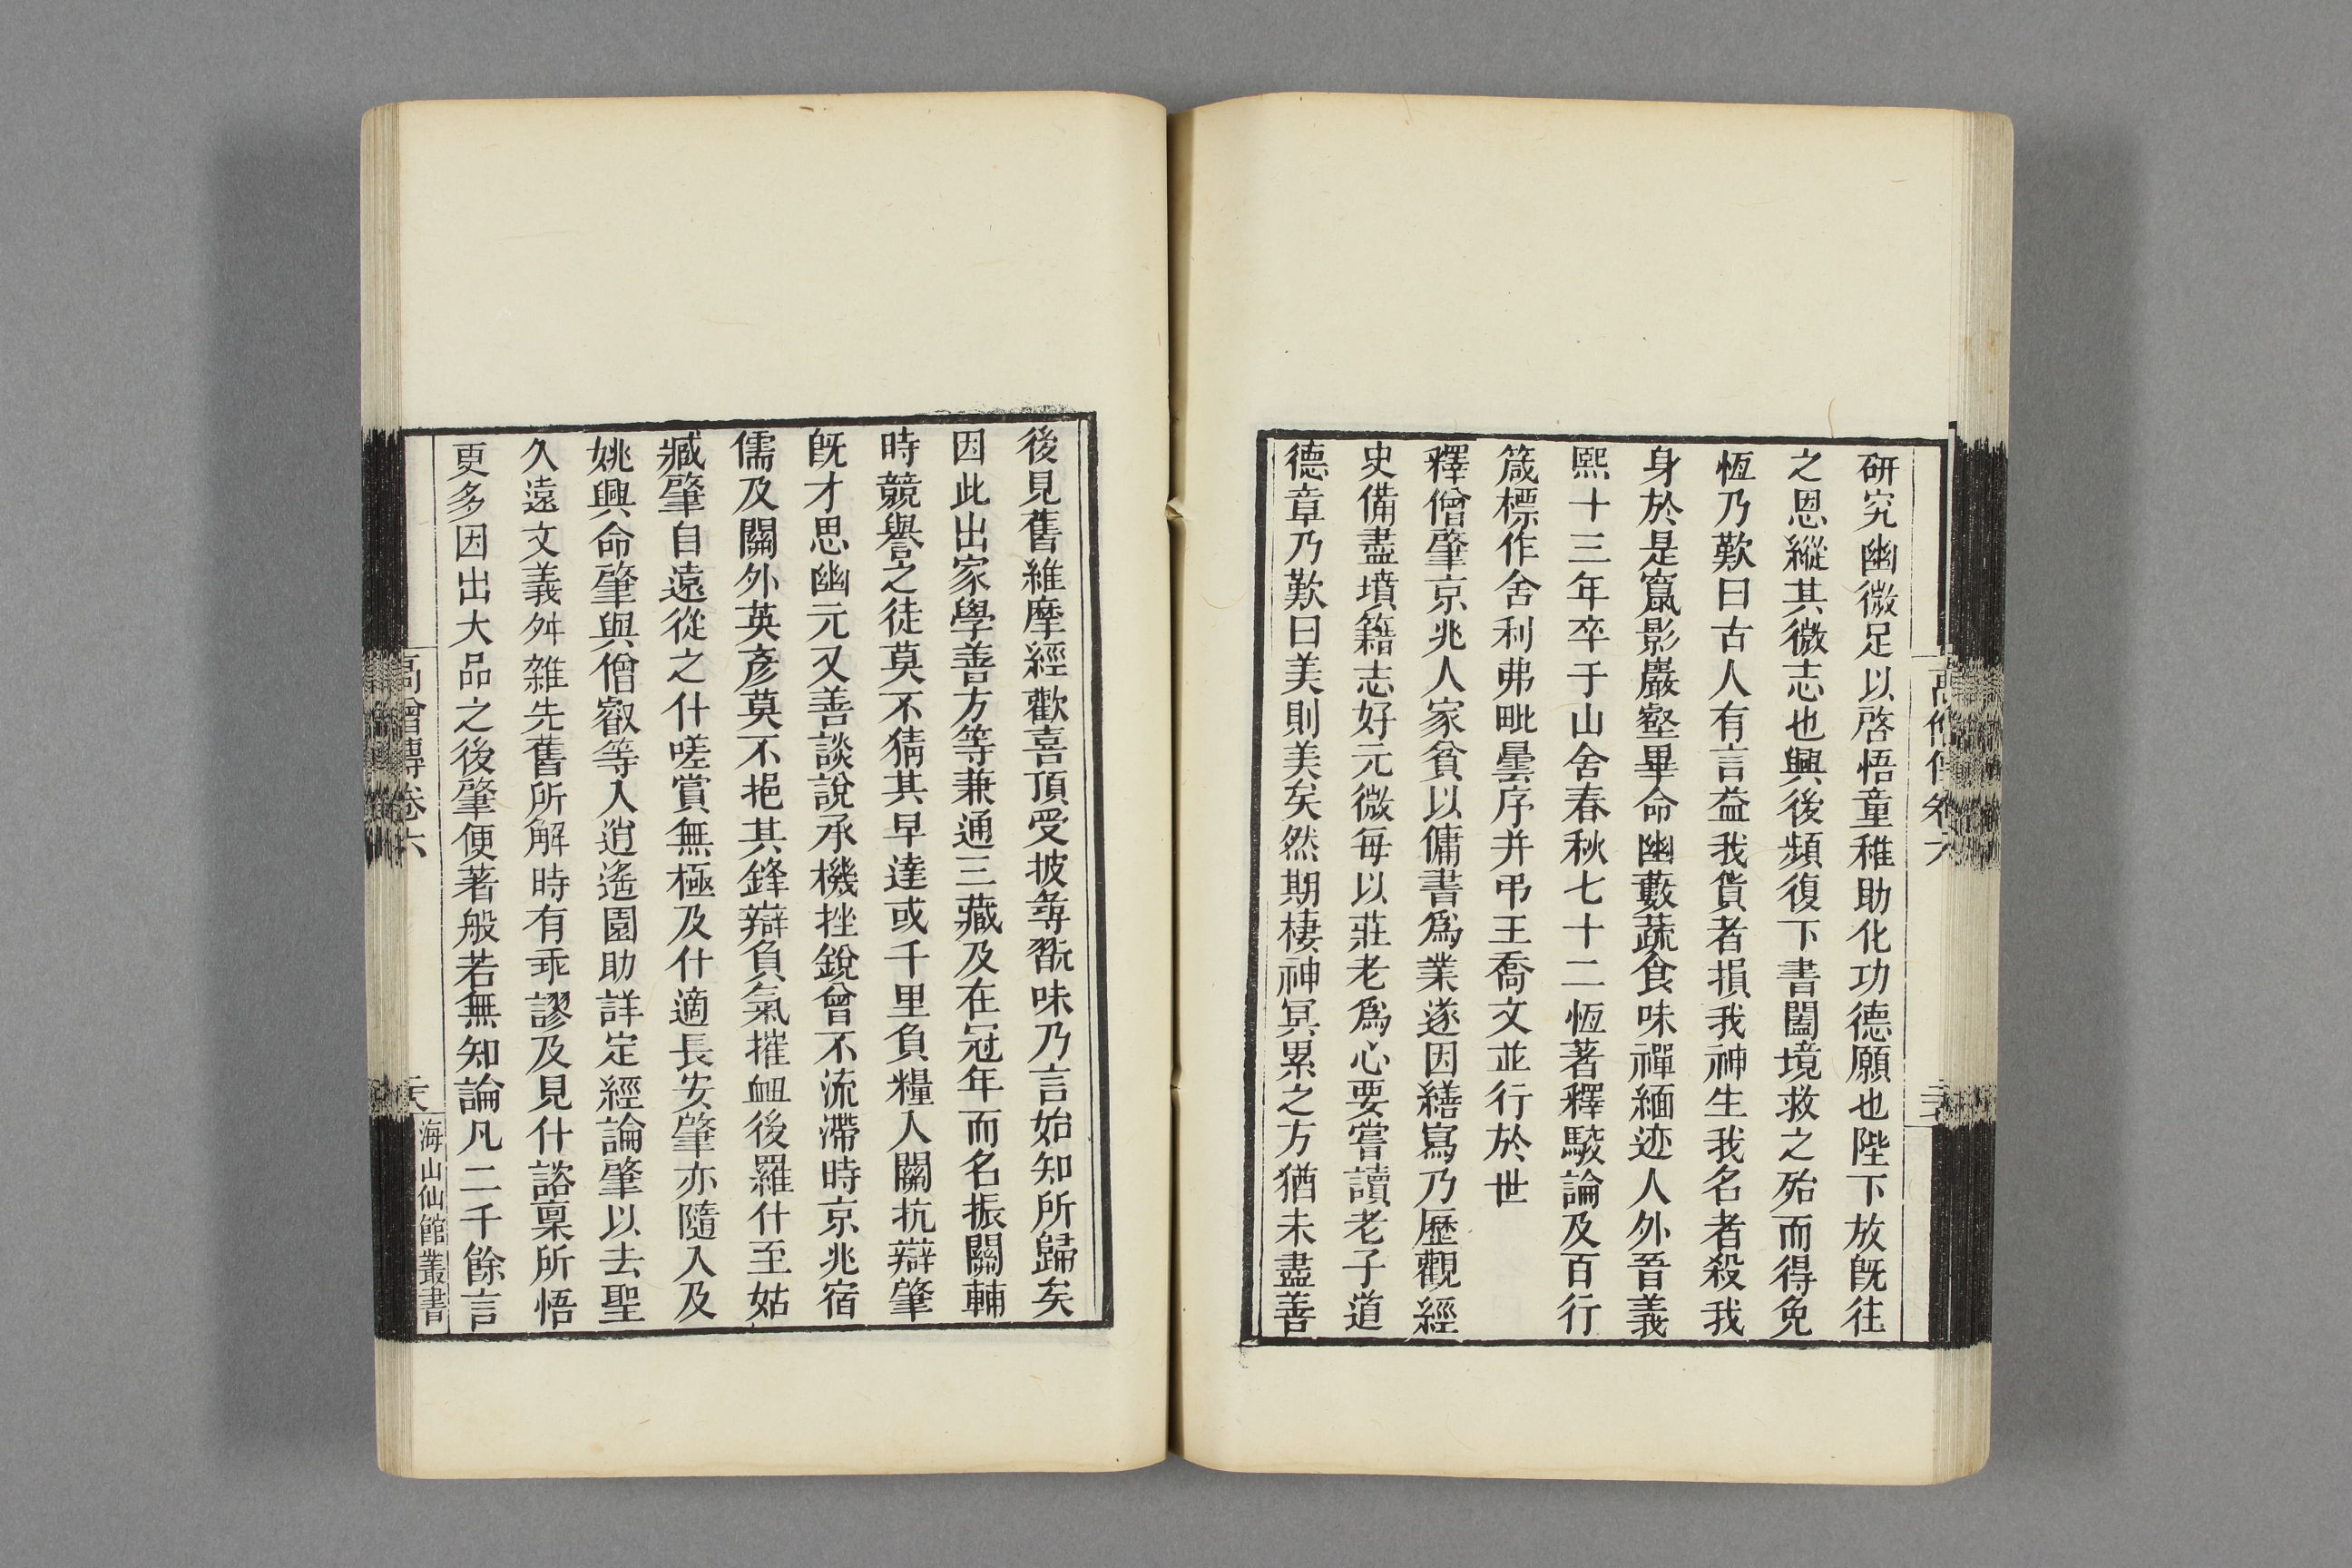 研究幽微足以啓悟童稚助化功德願也陛下放旣往
之恩縱其微志也興後頻復下書闔境救之殆而得免
恆乃歎曰古人有言益我貨者損我神生我名者殺我
身於是竄影巖壑畢命幽藪蔬食味禪緬迹人外晉義
熙十三年卒于山舍春秋七十二恆著釋駁論及百行
箴標作舍利弗毗曇序并弔王喬文並行於世
釋僧肇京兆人家貧以傭書爲業遂因繕寫乃歷觀經
史備盡墳籍志好元微每以莊老爲心要嘗讀老子道
德章乃歎曰美則美矣然期棲神冥累之方猶未盡善
後見舊維摩經歡喜頂受披尋翫味乃言始知所歸矣
因此出家學善方等兼通三藏及在冠年而名振關輔
時競譽之徒莫不猜其早達或千里負糧入關抗辯肇
旣才思幽元又善談說承機挫銳曾不流滯時京兆宿
儒及關外英彥莫不挹其鋒辯負氣摧衄後羅什至姑
臧肇自遠從之什嗟賞無極及什適長安肇亦隨入及
姚興命肇與僧叡等入逍遙園助詳定經論肇以去聖
久遠文義舛雜先舊所解時有乖謬及見什諮稟所悟
更多因出大品之後肇便著般若無知論凡二千餘言
高僧傳卷六
海山仙館叢書